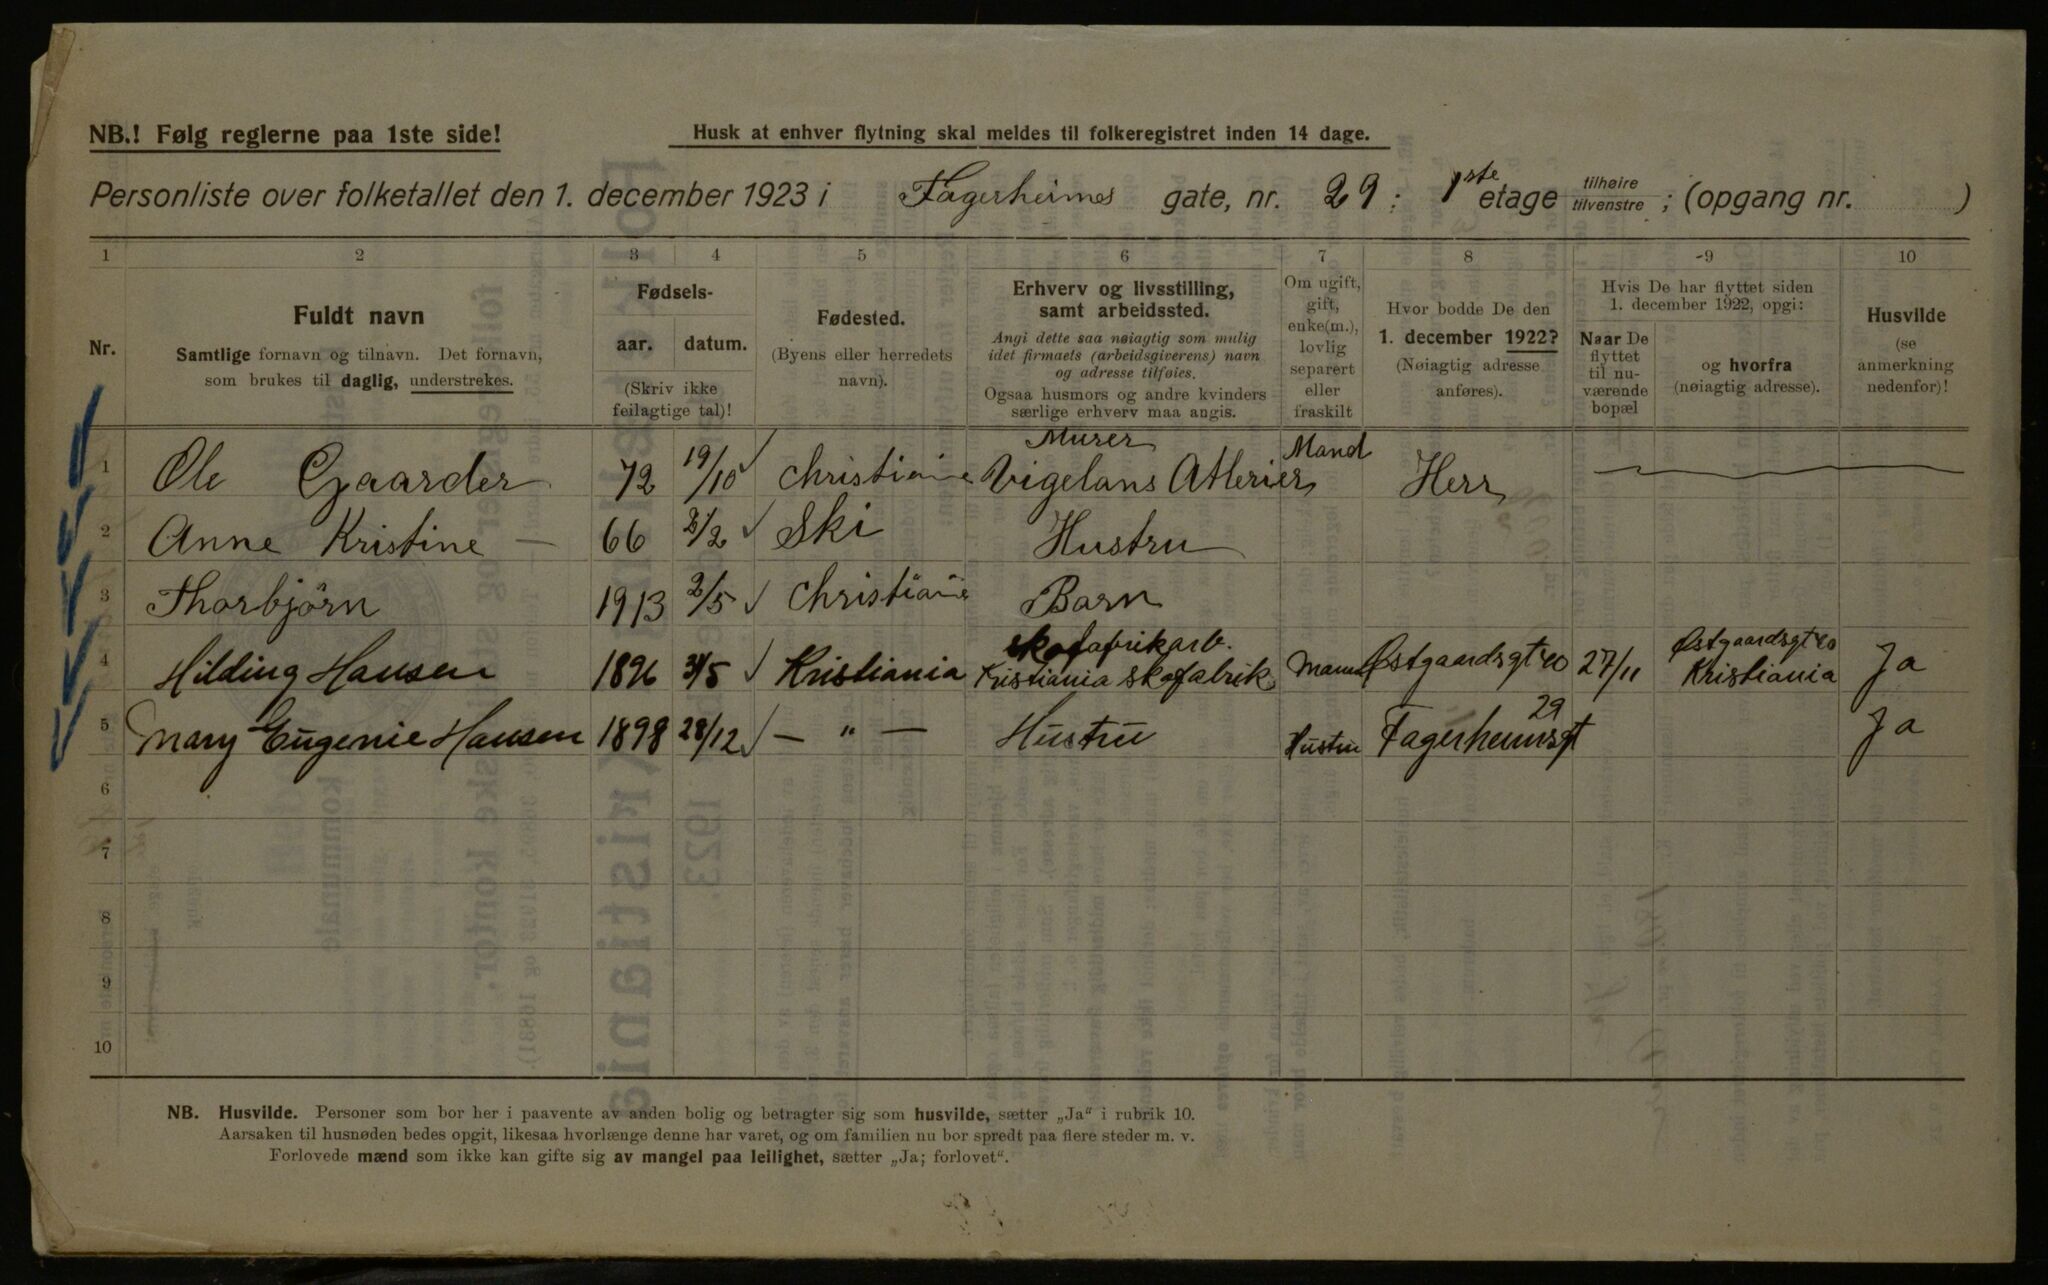 NB.! Følg reglerne paa 1ste side!
Husk at enhver flytning skal meldes til folkeregistret inden 14 dage.
Personliste over folketallet den 1. december 1923 i Fagerheims gate, nr. 29 : 1ste etage tilhøire tilvenstre ; (opgang nr. )
1 2 3 4 5 6 7 8 9 10
Nr.
Fuldt navn
Samtlige fornavn og tilnavn. Det fornavn,
som brukes til daglig, understrekes.
Fødsels-
aar. datum.
(Skriv ikke
feilagtige tal)!
Fødested.
(Byens eller herredets
navn).
Erhverv og livsstilling,
samt arbeidssted.
Angi dette saa nøiagtig som mulig
idet firmaets (arbeidsgiverens) navn
og adresse tilføies.
Ogsaa husmors og andre kvinders
særlige erhverv maa angis.
Om ugift,
gift,
enke(m.),
lovlig
separert
eller
fraskilt
Hvor bodde De den
1. december 1922?
(Nøiagtig adresse
anføres).
Hvis De har flyttet siden
1. december 1922, opgi:
Naar De
flyttet
til nu-
værende
bopæl
og hvorfra
(nøiagtig adresse).
Husvilde
(se
anmerkning
nedenfor)!
Murer
1 Ole Gjaarder 72 19/10 Christiania Vigelans Atlerier Mand Herr
2 Anne Kristine — 66 2/2 Ski Hustru
3 Thorbjörn 1913 2/5 Christiania Barn
skofabrikarb. Østgaardsgt 20
4 Hilding Hansen 1896 Kristiania Kristiania skofabrik Mann Østgaardsgt 20 27/11 Kristiania Ja
29
5 Mary Eugenie Hansen 1898 28/12 — " — Hustru Hustru Fagerheimsgt Ja
6
7
8
9
10
NB. Husvilde. Personer som bor her i paavente av anden bolig og betragter sig som husvilde, sætter „Ja“ i rubrik 10.
Aarsaken til husnøden bedes opgit, likesaa hvorlænge denne har varet, og om familien nu bor spredt paa flere steder m. v.
Forlovede mænd som ikke kan gifte sig av mangel paa leilighet, sætter „Ja; forlovet“.